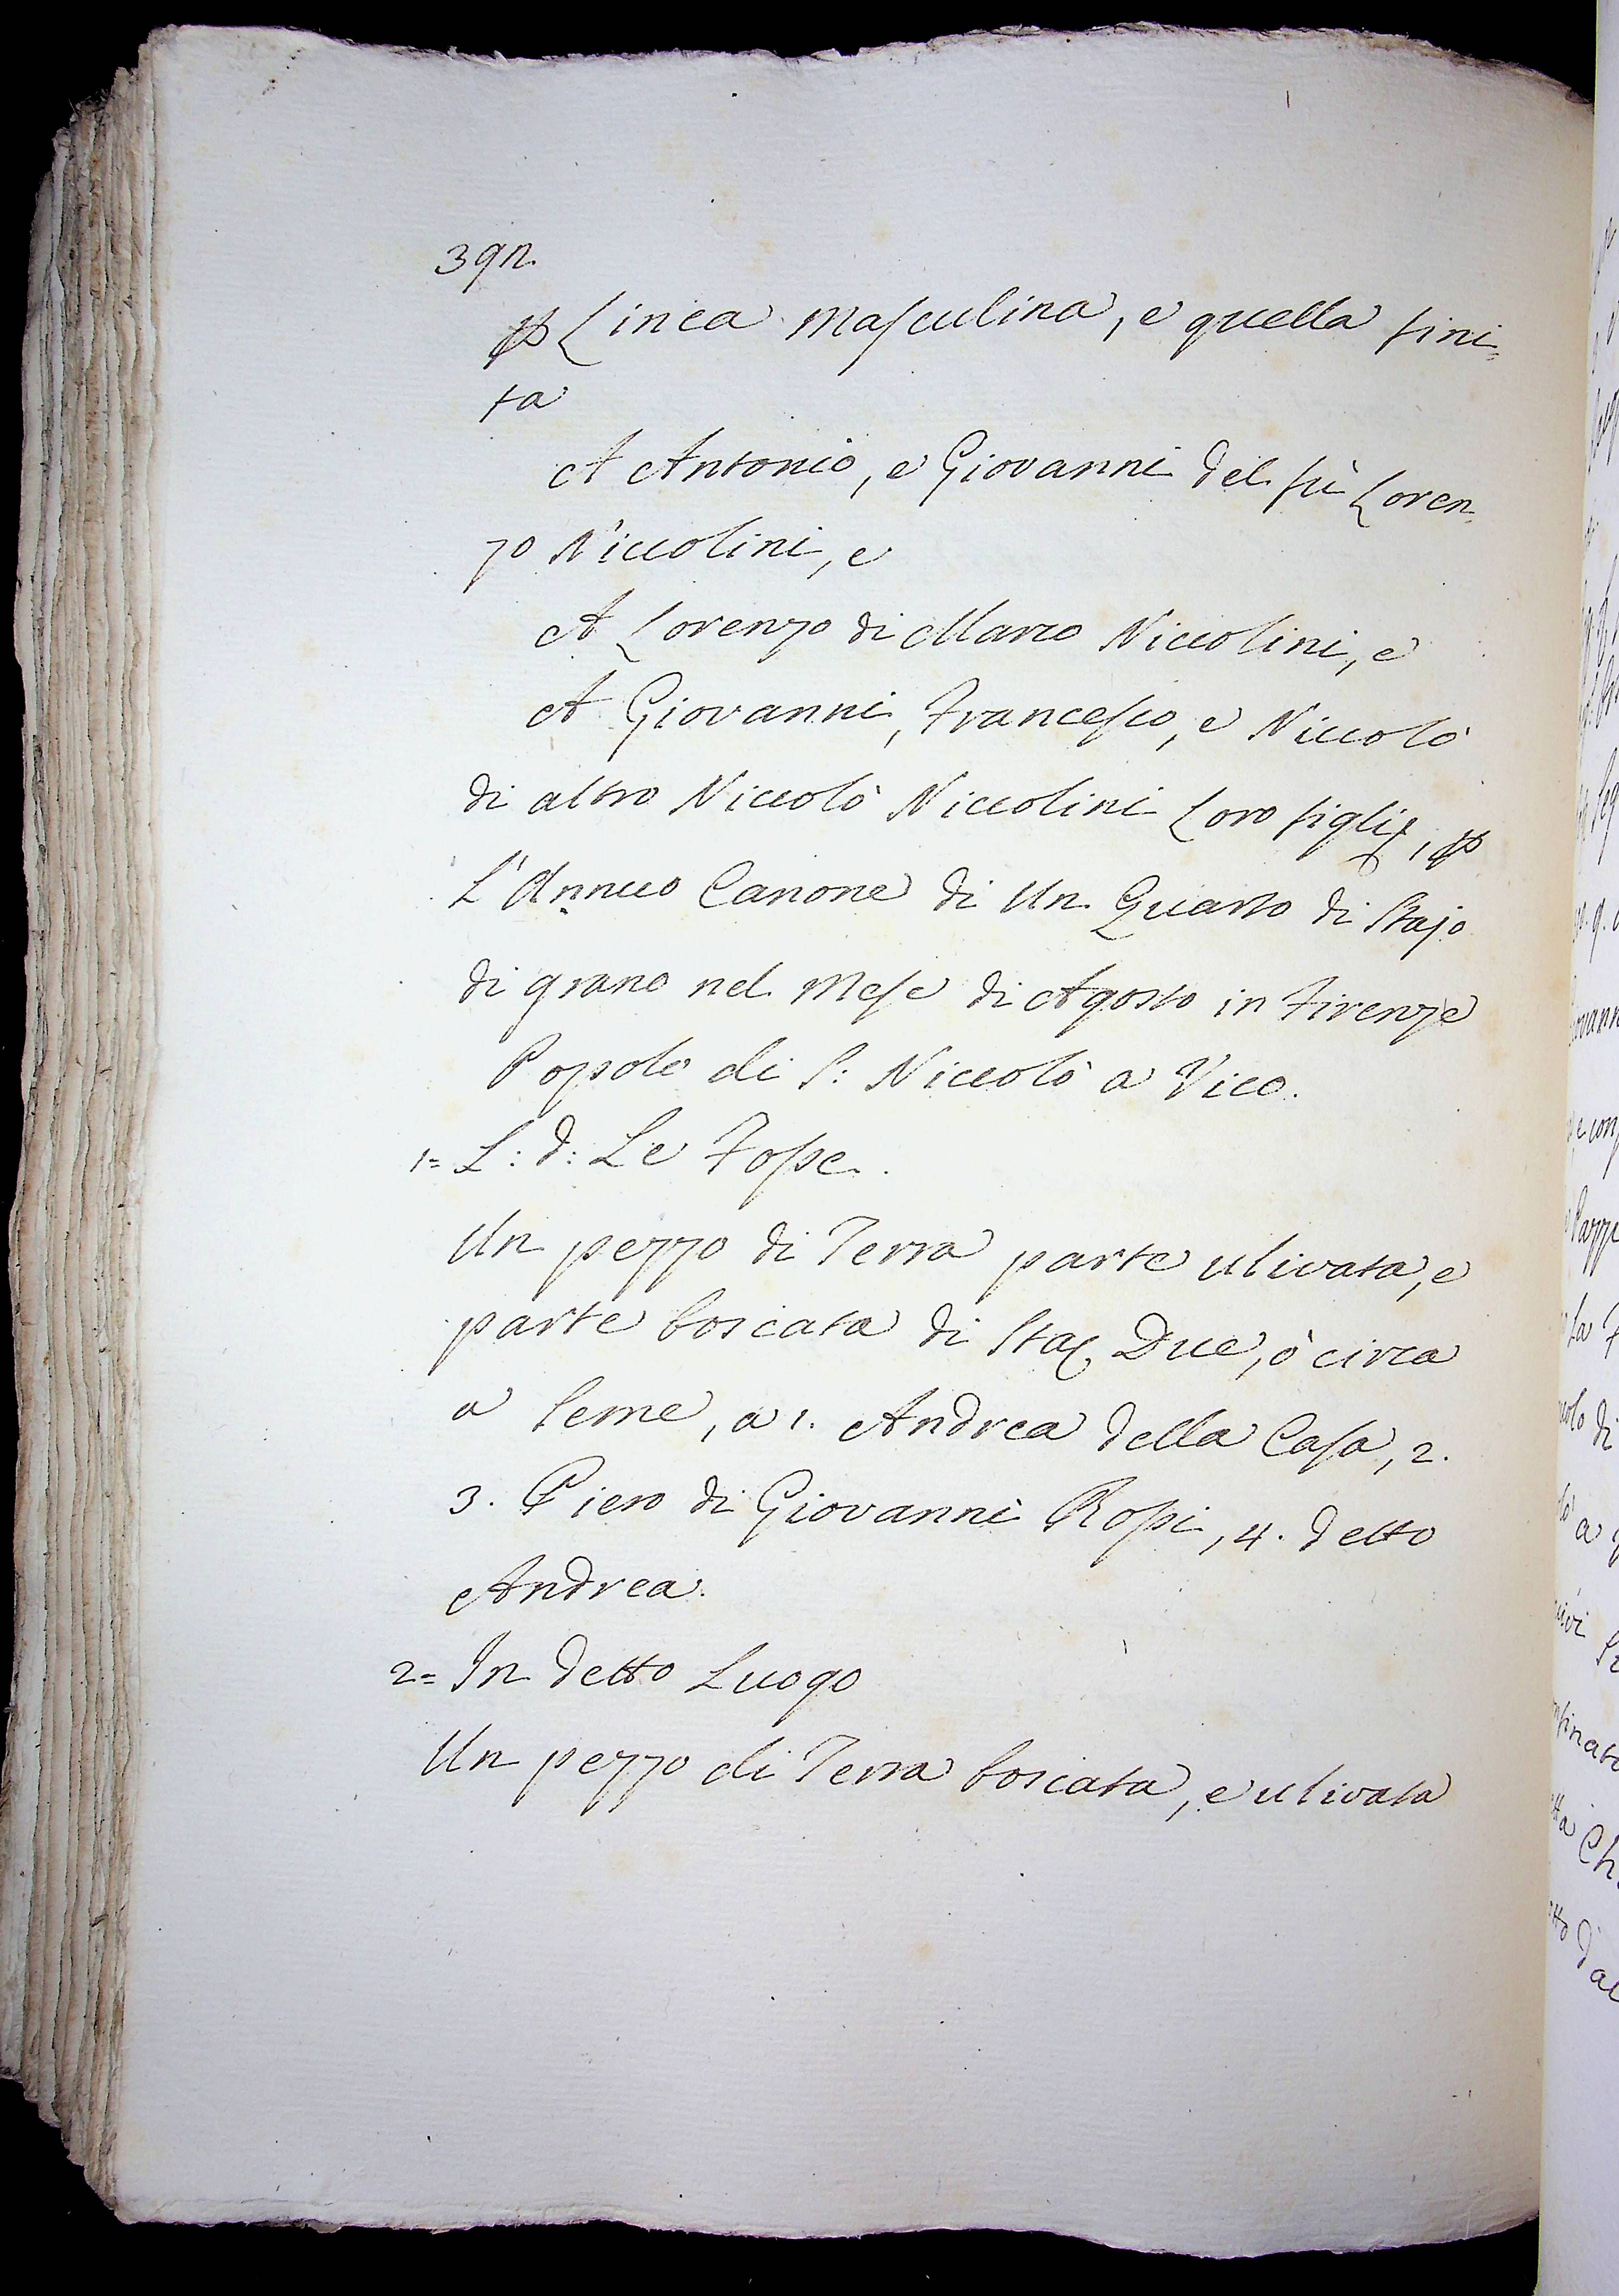 392
p Linea Masculina, e quella fini=
ta
A Antonio, e Giovanni del fù Loren=
zo Niccolini, e
A Lorenzo di Marco Niccolini, e
A Giovanni, Francesco, e Niccolò
di altro Niccolò Niccolini Loro figlij, p
L'Annuo Canone di Un Quarto di Stajo
di grano nel Mese di Agosto in Firenze
Popolo di S: Niccolò a Vico.
1= L: d: Le Fosse.
Un pezzo di Terra parte ulivata, e
parte boscata di Sta, Due, ò circa
a Seme, a 1. Andrea della Casa, 2.
3. Piero di Giovanni Rossi, 4. detto
Andrea.
2= In detto Luogo
Un pezzo di Terra boscata, e ulivata